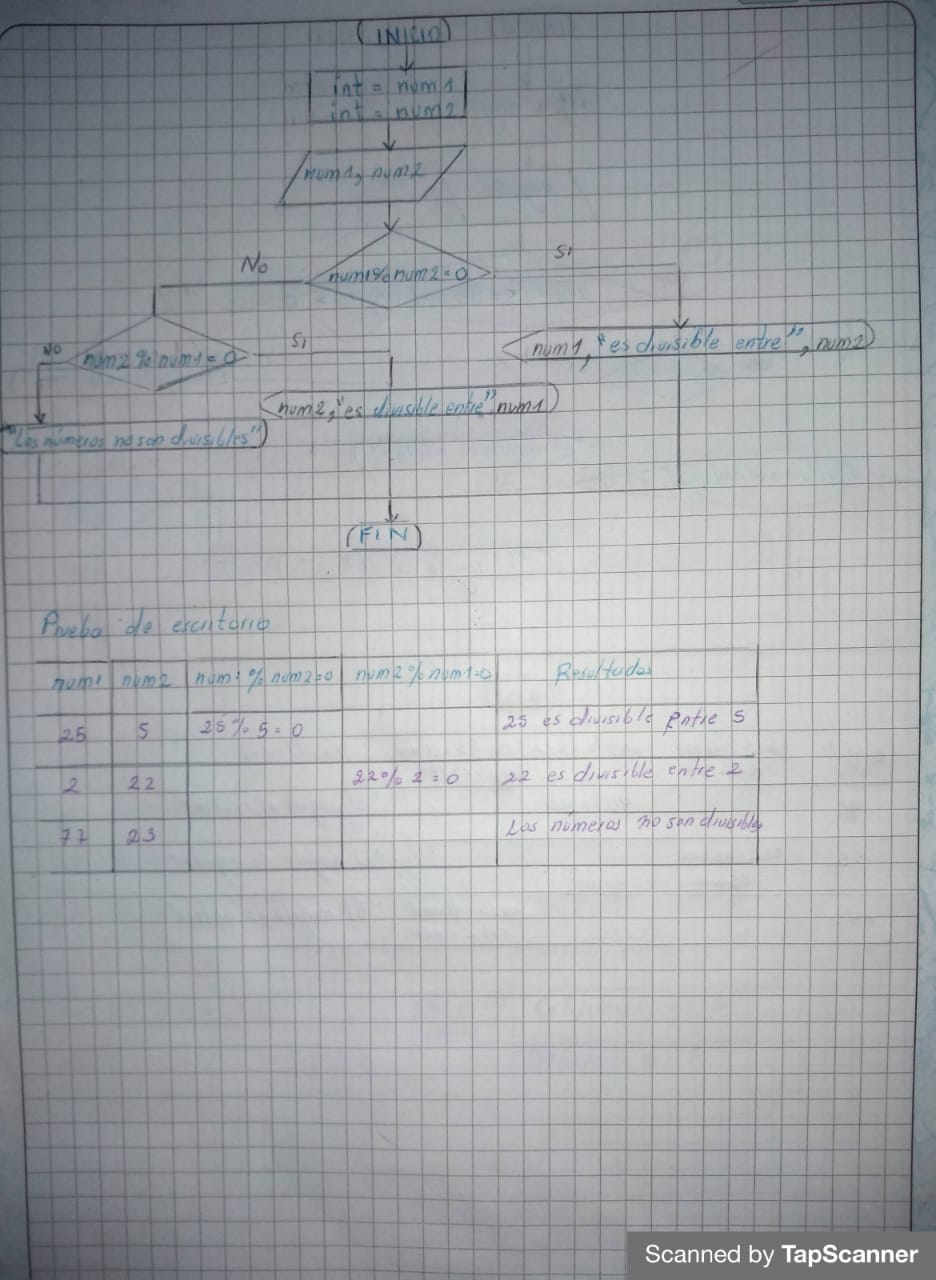 INICIO
int = num1
int = num2
num1, num2
No
num1%num2=0
Si
No
num2 % num1 = 0
Si
num1, "es divisible entre", num2
num2, "es divisible entre" num1
"Los números no son divisibles"
FIN
Prueba de escritorio
num1 num2 num1 % num2=0 num2 % num1=0 Resultados
25 5 25 % 5 = 0 25 es divisible entre 5
2 22 22 % 2 = 0 22 es divisible entre 2
77 23 Los números no son divisibles
Scanned by TapScanner